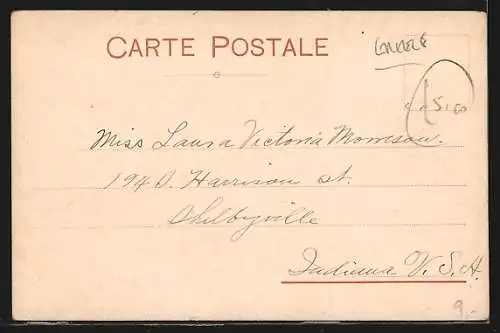 CARTE POSTALE
5,00
Miss Laura Victoria Morrison.
194 O. Harrison st.
Shelbyville
Indiana U.S.A.
9.-